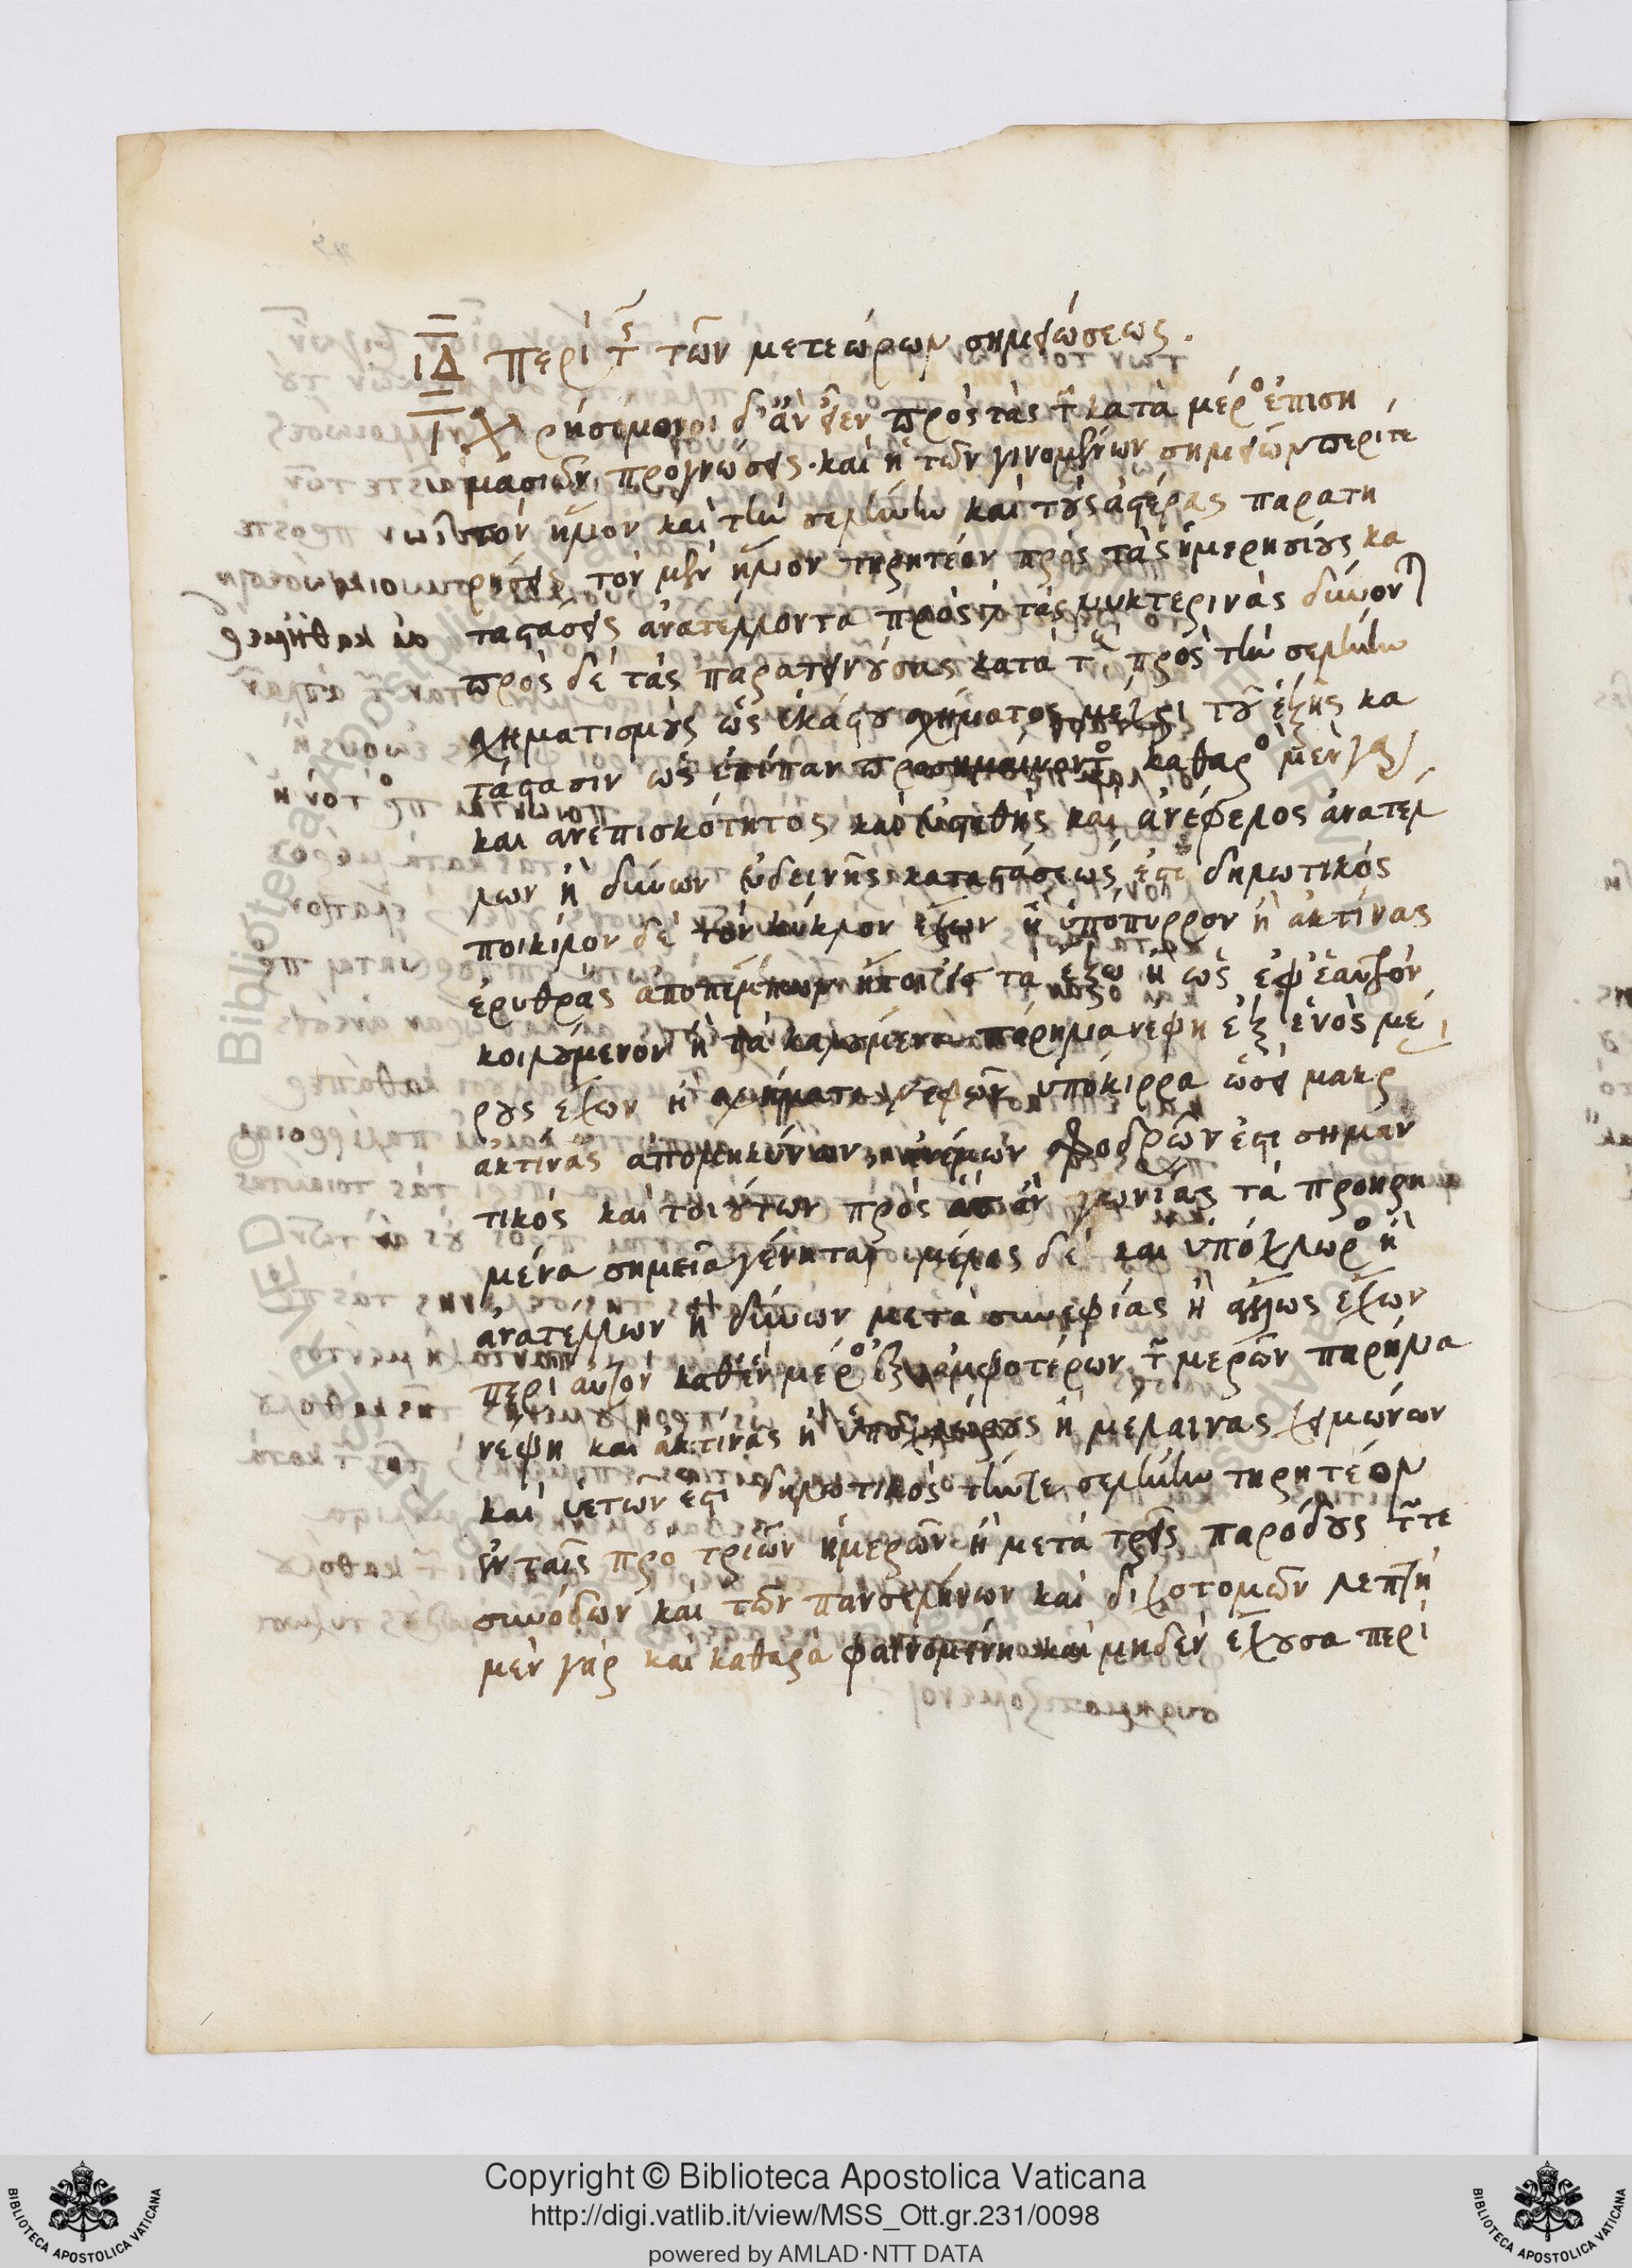 ΙΔ Περὶ τῆς τῶν μετεώρων σημειώσεως.
Χρήσιμοι δ' ἂν εἶεν πρὸς τὰς τῶν κατὰ μέρος ἐπιση
μασιῶν προγνώσεις. καὶ αἱ τῶν γινομένων σημείων περί τε
τὸν ἥλιον καὶ τὴν σελήνην καὶ τοὺς ἀστέρας παρατη
ρήσεις τὸν μὲν ἥλιον τηρητέον πρὸς τὰς ἡμερησίους κα
ταστάσεις ἀνατέλλοντα πρὸς δὲ τὰς νυκτερινὰς δύνοντα
πρὸς δὲ τὰς παρατεινούσας κατὰ τοὺς πρὸς τὴν σελήνην
σχηματισμοὺς ὡς ἑκάστου σχήματος μέχρι τοῦ ἑξῆς κα
τάστασιν ὡς ἐπίπαν προσημαίνοντος καθαρὸς μὲν γὰρ
καὶ ἀνεπισκότητος καὶ εὐσταθὴς καὶ ἀνέφελος ἀνατέλ
λων ἢ δύνων εὐδεινῆς καταστάσεώς ἐστι δηλωτικός
ποικίλον δὲ τὸν κύκλον ἔχων ἢ ὑπόπυρρον ἢ ἀκτίνας
ἐρυθρὰς ἀποπέμπων ἤτοι εἰς τὰ ἔξω ἢ ὡς ἐφ' ἑαυτὸν
κοιλούμενον ἢ τὰ καλούμενα παρήλια νέφη ἐξ ἑνὸς μέ
ρους ἔχων ἢ σχήματα νεφῶν ὑπόκιρρα ὡσεὶ μακρ
ἀκτίνας ἀπομηκύνων ἀνέμων σφοδρῶν ἐστι σημαν
τικὸς καὶ τοιούτων πρὸς ἃς ἂν γωνίας τὰ προειρη
μένα σημεῖα γένηται μέλας δὲ καὶ ὑπόχλωρος ἢ
ἀνατέλλων ἢ δύνων μετὰ συννεφίας ἢ ἅλως ἔχων
περὶ αὐτὸν καθ' ἓν μέρος ἢ ἐξ ἀμφοτέρων τῶν μερῶν παρήλια
νέφη καὶ ἀκτίνας ἢ ὑποχλώρους ἢ μελαίνας χειμώνων
καὶ ὑετῶν ἐστι δηλωτικὸς τήν τε σελήνην τηρητέον
ἐν ταῖς πρὸ τριῶν ἡμερῶν ἢ μετὰ τρεῖς παρόδους τῶν τε
συνόδων καὶ τῶν πανσελήνων καὶ διχοτόμων λεπτὴ
μὲν γὰρ καὶ καθαρὰ φαινομένη καὶ μηδὲν ἔχουσα περὶ
Copyright © Biblioteca Apostolica Vaticana
http://digi.vatlib.it/view/MSS_Ott.gr.231/0098
powered by AMLAD·NTT DATA
BIBLIOTECA APOSTOLICA VATICANA
BIBLIOTECA APOSTOLICA VATICANA